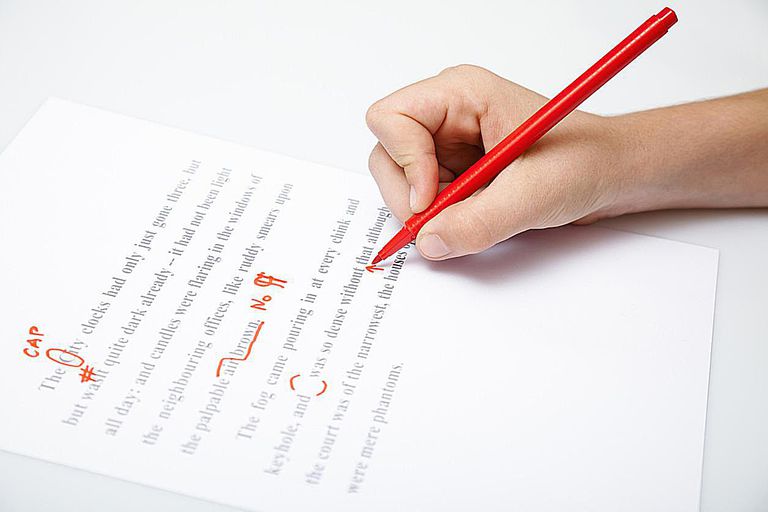 CAP
The City clocks had only just gone three, but
#
but wasn't quite dark already – it had not been light
all day: and candles were flaring in the windows of
the neighbouring offices, like ruddy smears upon
the palpable air brown. No ¶
The fog came pouring in at every chink and
keyhole, and was so dense without that although
the court was of the narrowest, the houses
were mere phantoms.